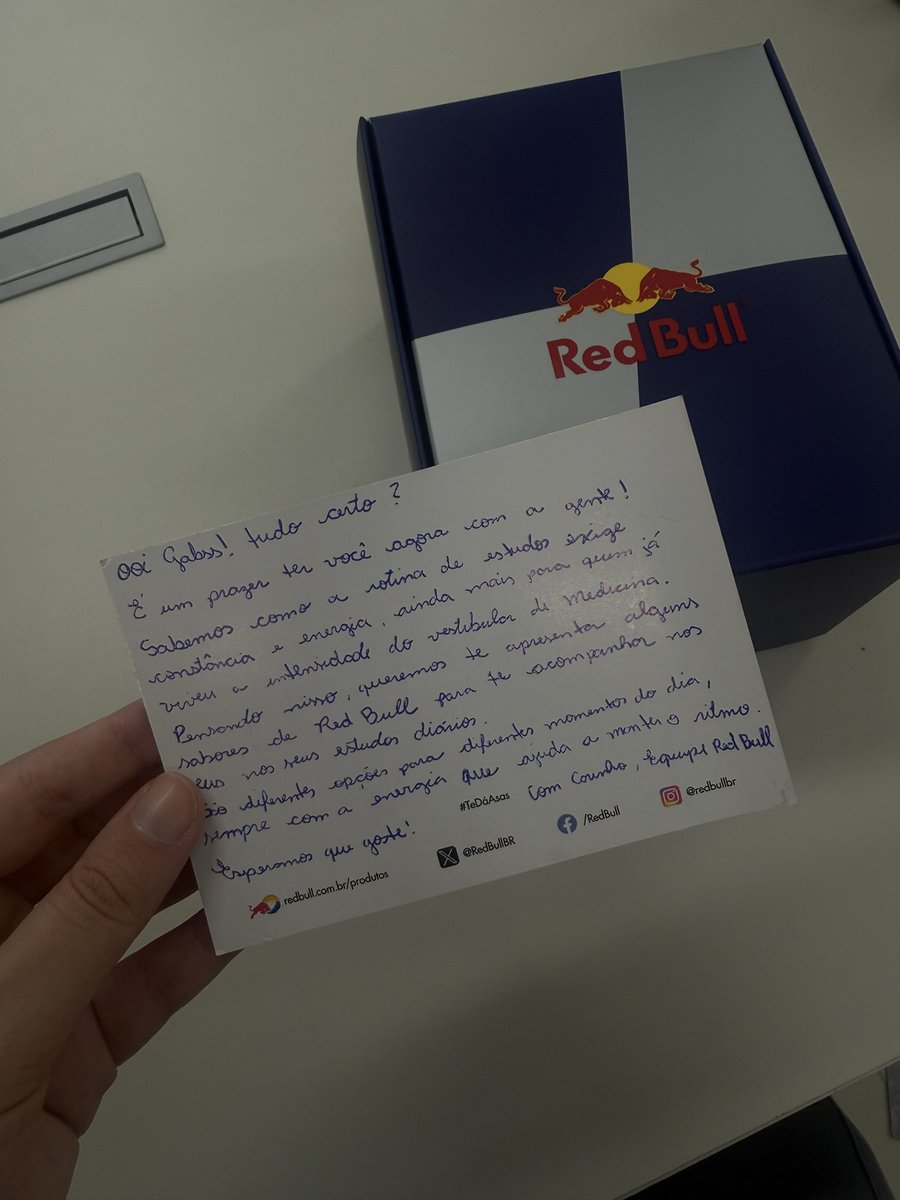 Red Bull
OOi Gabss! tudo certo?
É um prazer ter você agora com a gente!
Sabemos como a rotina de estudos exige
constância e energia, ainda mais para quem já
viveu a intensidade do vestibular de Medicina.
Pensando nisso, queremos te apresentar alguns
sabores de Red Bull para te acompanhar nos
seus nos seus estudos diários.
São diferentes opções para diferentes momentos do dia,
sempre com a energia que ajuda a manter o ritmo.
Esperamos que goste!
#TeDáAsas
Com Carinho, Equipe Red Bull
redbull.com.br/produtos
@RedBullBR
/RedBull
@redbullbr